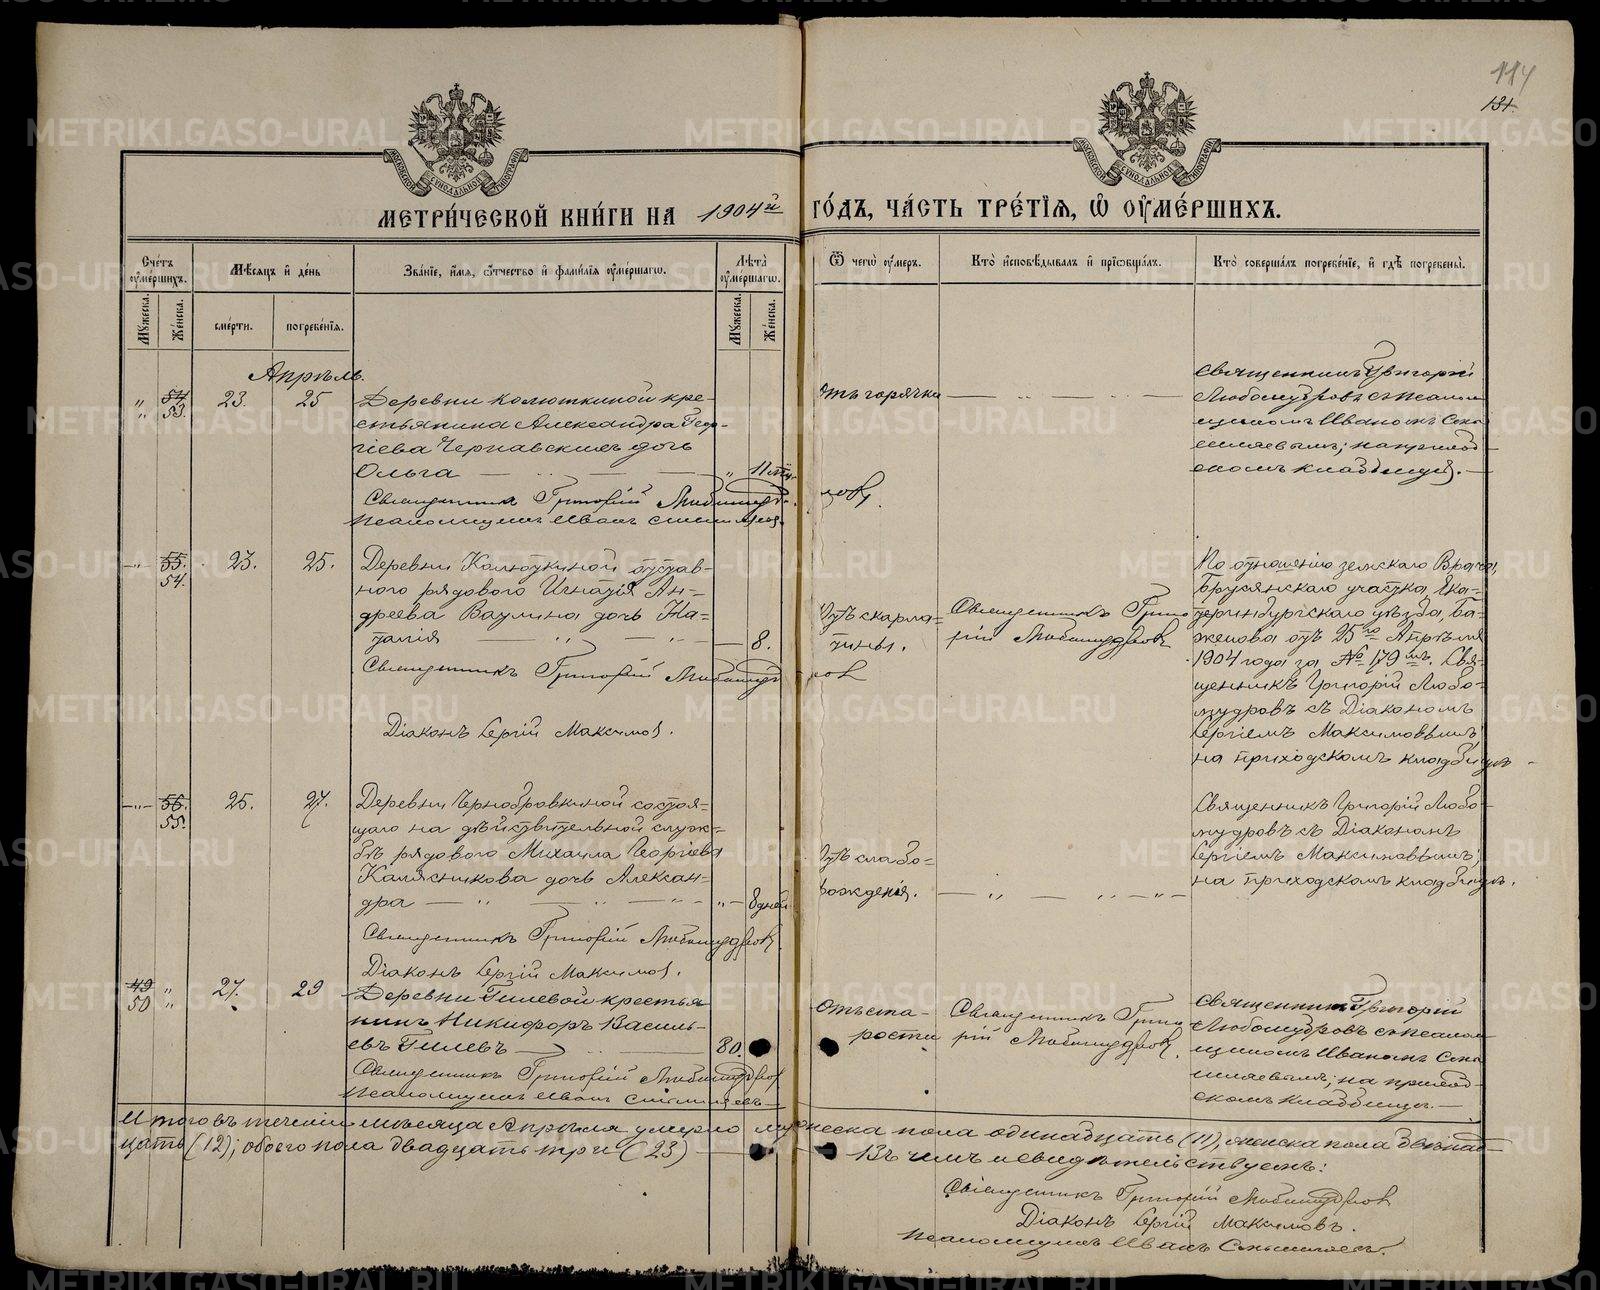 114
131.
МОСКОВСКОЙ СѴНОДАЛЬНОЙ ТИПОГРАФІИ
МОСКОВСКОЙ СѴНОДАЛЬНОЙ ТИПОГРАФІИ
МЕТРИ́ЧЕСКОЙ КНИ́ГИ НА 1904й ГО́ДЪ, ЧА́СТЬ ТРЕ́ТІѦ, Ѽ ОУ҆МЕ́РШИХЪ.
Сче́тъ оу҆ме́ршихъ.
Мѣ́сяцъ и҆ де́нь
Зва́ніе, и҆́мя, ѻ҆́тчество и҆ фами́лія оу҆ме́ршагѡ.
Лѣта̀ оу҆ме́ршагѡ.
Ѿ чегѡ̀ оу҆́меръ.
Кто̀ и҆сповѣ́дывалъ и҆ прїѡбща́лъ.
Кто̀ соверша́лъ погребе́ніе, и҆ гдѣ̀ погребены̀.
Мꙋ́жеска.
Же́нска.
сме́рти.
погребе́нія.
Мꙋ́жеска.
Же́нска.
Апрѣль.
" 54 23. 25
" 53.
Деревни Колюткиной кре-
стьянина Александра Геор-
гіева Чернавскихъ дочь
Ольга — " 11 мѣ-
Священникъ Григорій Любомудровъ.
Псаломщикъ Иванъ
отъ горячки
Священникъ Григорій
Любомудровъ съ псалом
щикомъ Иваномъ
на приход
скомъ кладбищѣ. —
—"— 55. 23. 25.
54.
Деревни Колюткиной отстав-
ного рядового Игнатія Ан-
дреева Ваулина дочь На-
талія — 8.
Священникъ Григорій Любомудровъ
Діаконъ Сергій Максимов.
Отъ скарла-
тины.
Священникъ Григо
рій Любомудровъ
По отношенію земскаго Врача,
Брусянскаго участка, Ека-
теринбургскаго уѣзда, Ба-
женова отъ 25го Апрѣля
1904 года за № 179мъ. Свя-
щенникъ Григорій Любо-
мудровъ съ Діакономъ
Сергіемъ Максимовымъ,
на приходскомъ кладбищѣ.
—"— 56. 25. 27.
55.
Деревни Чернобровкиной состоя-
щаго на дѣйствительной служ-
бѣ рядового Михаила Георгіева
Калясникова дочь Алексан-
дра — " — 8 дней
Священникъ Григорій Любомудровъ
Діаконъ Сергій Максимов.
Отъ слабо-
рожденія.
Священникъ Григорій Любо-
мудровъ съ Діакономъ
Сергіемъ Максимовымъ,
на приходскомъ кладбищѣ.
49 " 27. 29
50 "
Деревни Гилевой крестья
нинъ Никифоръ Василь-
евъ Гилевъ — 80.
Священникъ Григорій Любомудров
Псаломщикъ Иванъ
Отъ ста-
рости
Священникъ Григо
рій Любомудровъ.
Священникъ Григорій
Любомудровъ съ псалом
щикомъ Иваномъ
на приход-
скомъ кладбищѣ. —
Итого въ теченіи мѣсяца Апрѣля умерло мужеска пола одинадцать (11), женска пола двѣнад-
цать (12); обоего пола двадцать три (23) — Въ чемъ и свидѣтельствуемъ:
Священникъ Григорій Любомудров
Діаконъ Сергій Максимовъ.
Псаломщикъ Иванъ
METRIKI.GASO-URAL.RU